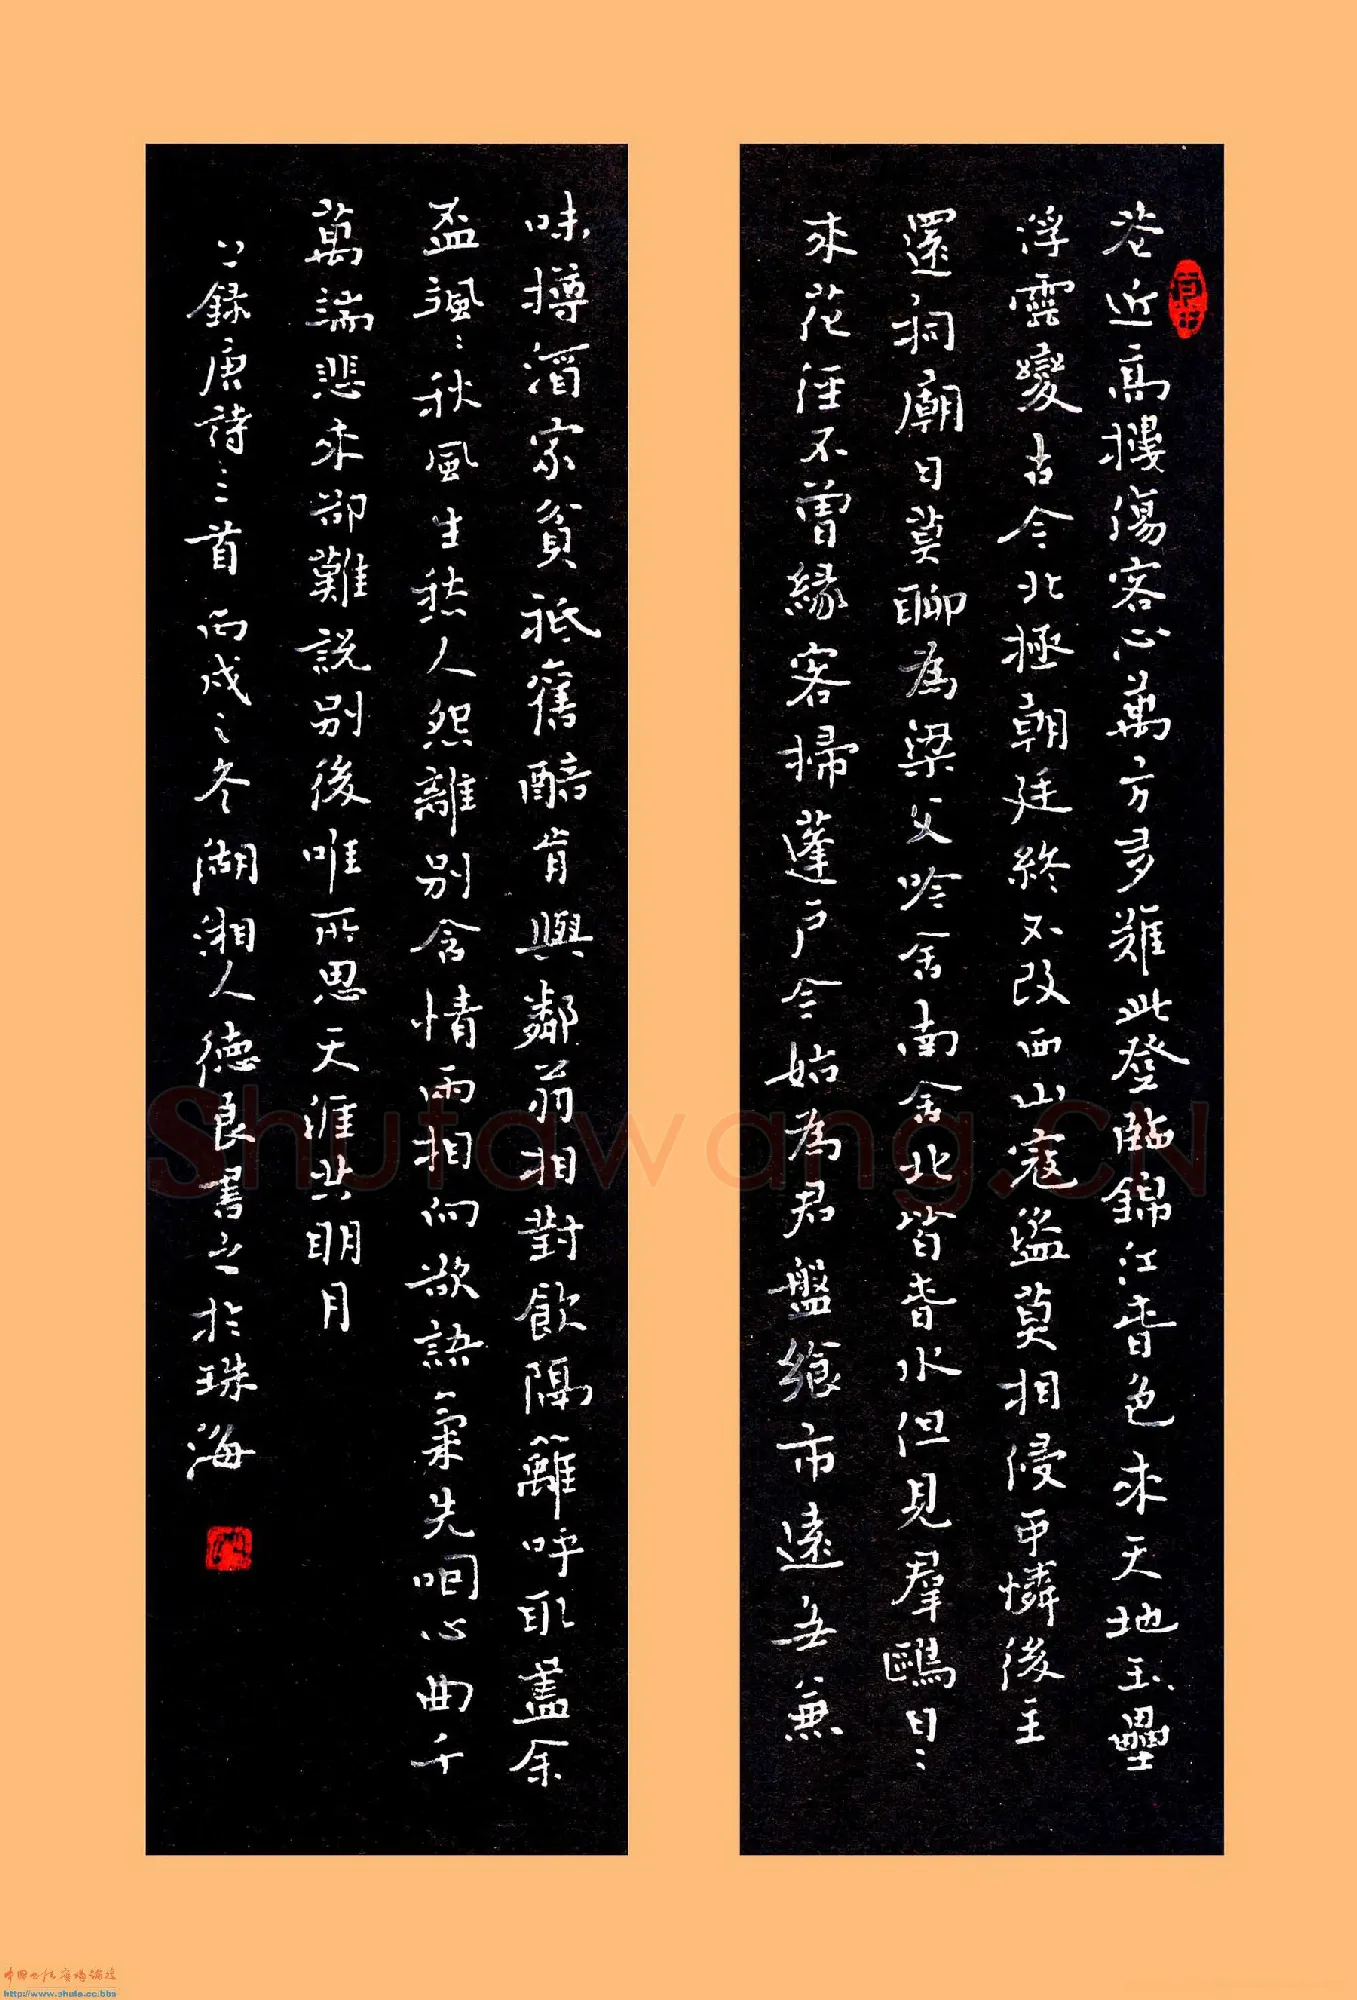 花近高樓傷客心萬方多難此登臨錦江春色來天地玉壘
浮雲變古今北極朝廷終不改西山寇盜莫相侵可憐後主
還祠廟日莫聊為梁父吟舍南舍北皆春水但見群鷗日〻
來花徑不曾緣客掃蓬戶今始為君盤飧市遠無兼
味樽酒家貧祗舊醅肯與鄰翁相對飲隔籬呼取盡余
盃颯〻秋風生愁人怨離別含情兩相向欲語氣先咽心曲千
萬端悲來卻難說別後唯所思天涯共明月
以錄唐詩三首丙戌之冬湖湘人德良書之於珠海
Shufawang.CN
http://www.shufa.cc/bbs